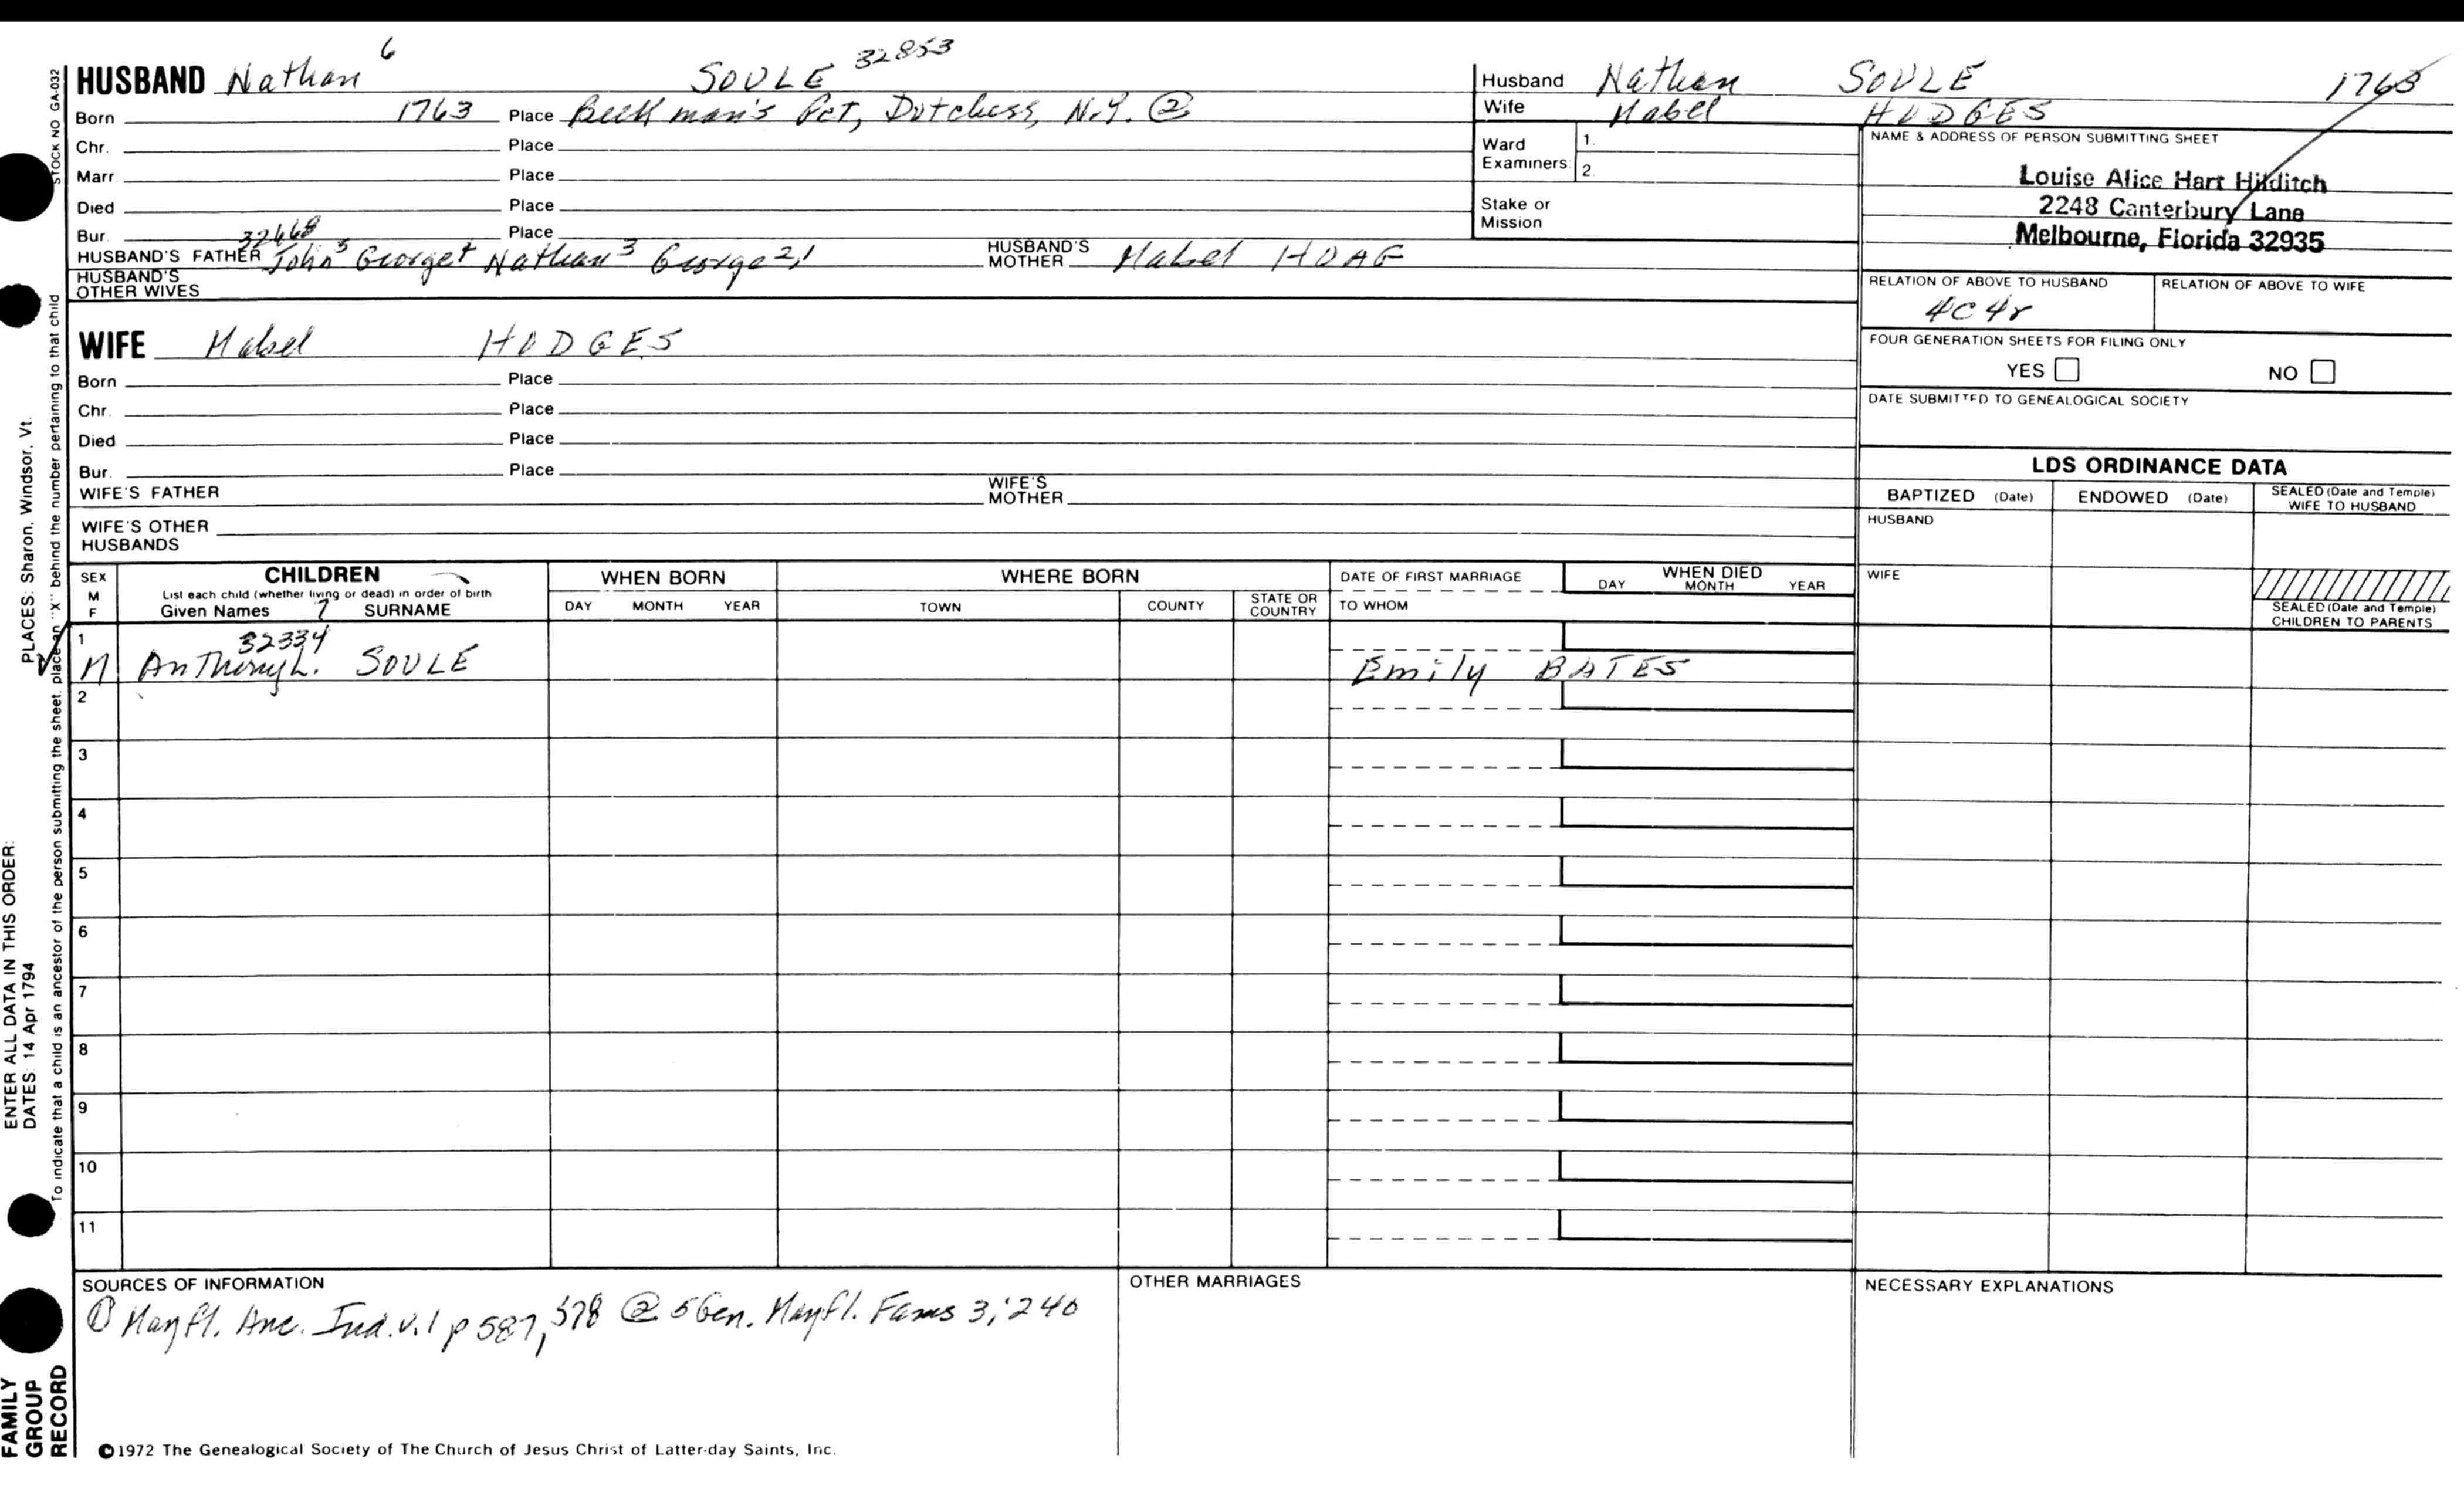 HUSBAND Nathan 6 SOULE 32853
Born 1763 Place Beekman's Pct, Dutchess, N.Y. ②
Chr. Place
Marr Place
Died Place
Bur. Place
32468
HUSBAND'S FATHER John5 George4 Nathan3 George2,1 HUSBAND'S MOTHER Mabel HOAG
HUSBAND'S OTHER WIVES
WIFE Mabel HODGES
Born Place
Chr. Place
Died Place
Bur. Place
WIFE'S FATHER WIFE'S MOTHER
WIFE'S OTHER HUSBANDS
Husband Nathan SOULE 1763
Wife Mabel HODGES
Ward Examiners 1. 2.
Stake or Mission
NAME & ADDRESS OF PERSON SUBMITTING SHEET
Louise Alice Hart Hilditch
2248 Canterbury Lane
Melbourne, Florida 32935
RELATION OF ABOVE TO HUSBAND RELATION OF ABOVE TO WIFE
4C 4r
FOUR GENERATION SHEETS FOR FILING ONLY
YES NO
DATE SUBMITTED TO GENEALOGICAL SOCIETY
LDS ORDINANCE DATA
BAPTIZED (Date) ENDOWED (Date) SEALED (Date and Temple) WIFE TO HUSBAND
HUSBAND
WIFE
SEALED (Date and Temple) CHILDREN TO PARENTS
SEX M F
CHILDREN
List each child (whether living or dead) in order of birth
Given Names 7 SURNAME
WHEN BORN
DAY MONTH YEAR
WHERE BORN
TOWN COUNTY STATE OR COUNTRY
DATE OF FIRST MARRIAGE
TO WHOM
WHEN DIED
DAY MONTH YEAR
1 32334
M Anthony L. SOULE Emily BATES
2
3
4
5
6
7
8
9
10
11
SOURCES OF INFORMATION
① Mayfl. Anc. Ind. v.1 p 587, 578 ② 5 Gen. Mayfl. Fams 3;240
OTHER MARRIAGES
NECESSARY EXPLANATIONS
©1972 The Genealogical Society of The Church of Jesus Christ of Latter-day Saints, Inc.
STOCK NO GA-032
To indicate that a child is an ancestor of the person submitting the sheet, place an "X" behind the number pertaining to that child
ENTER ALL DATA IN THIS ORDER:
DATES: 14 Apr 1794
PLACES: Sharon, Windsor, Vt.
FAMILY GROUP RECORD